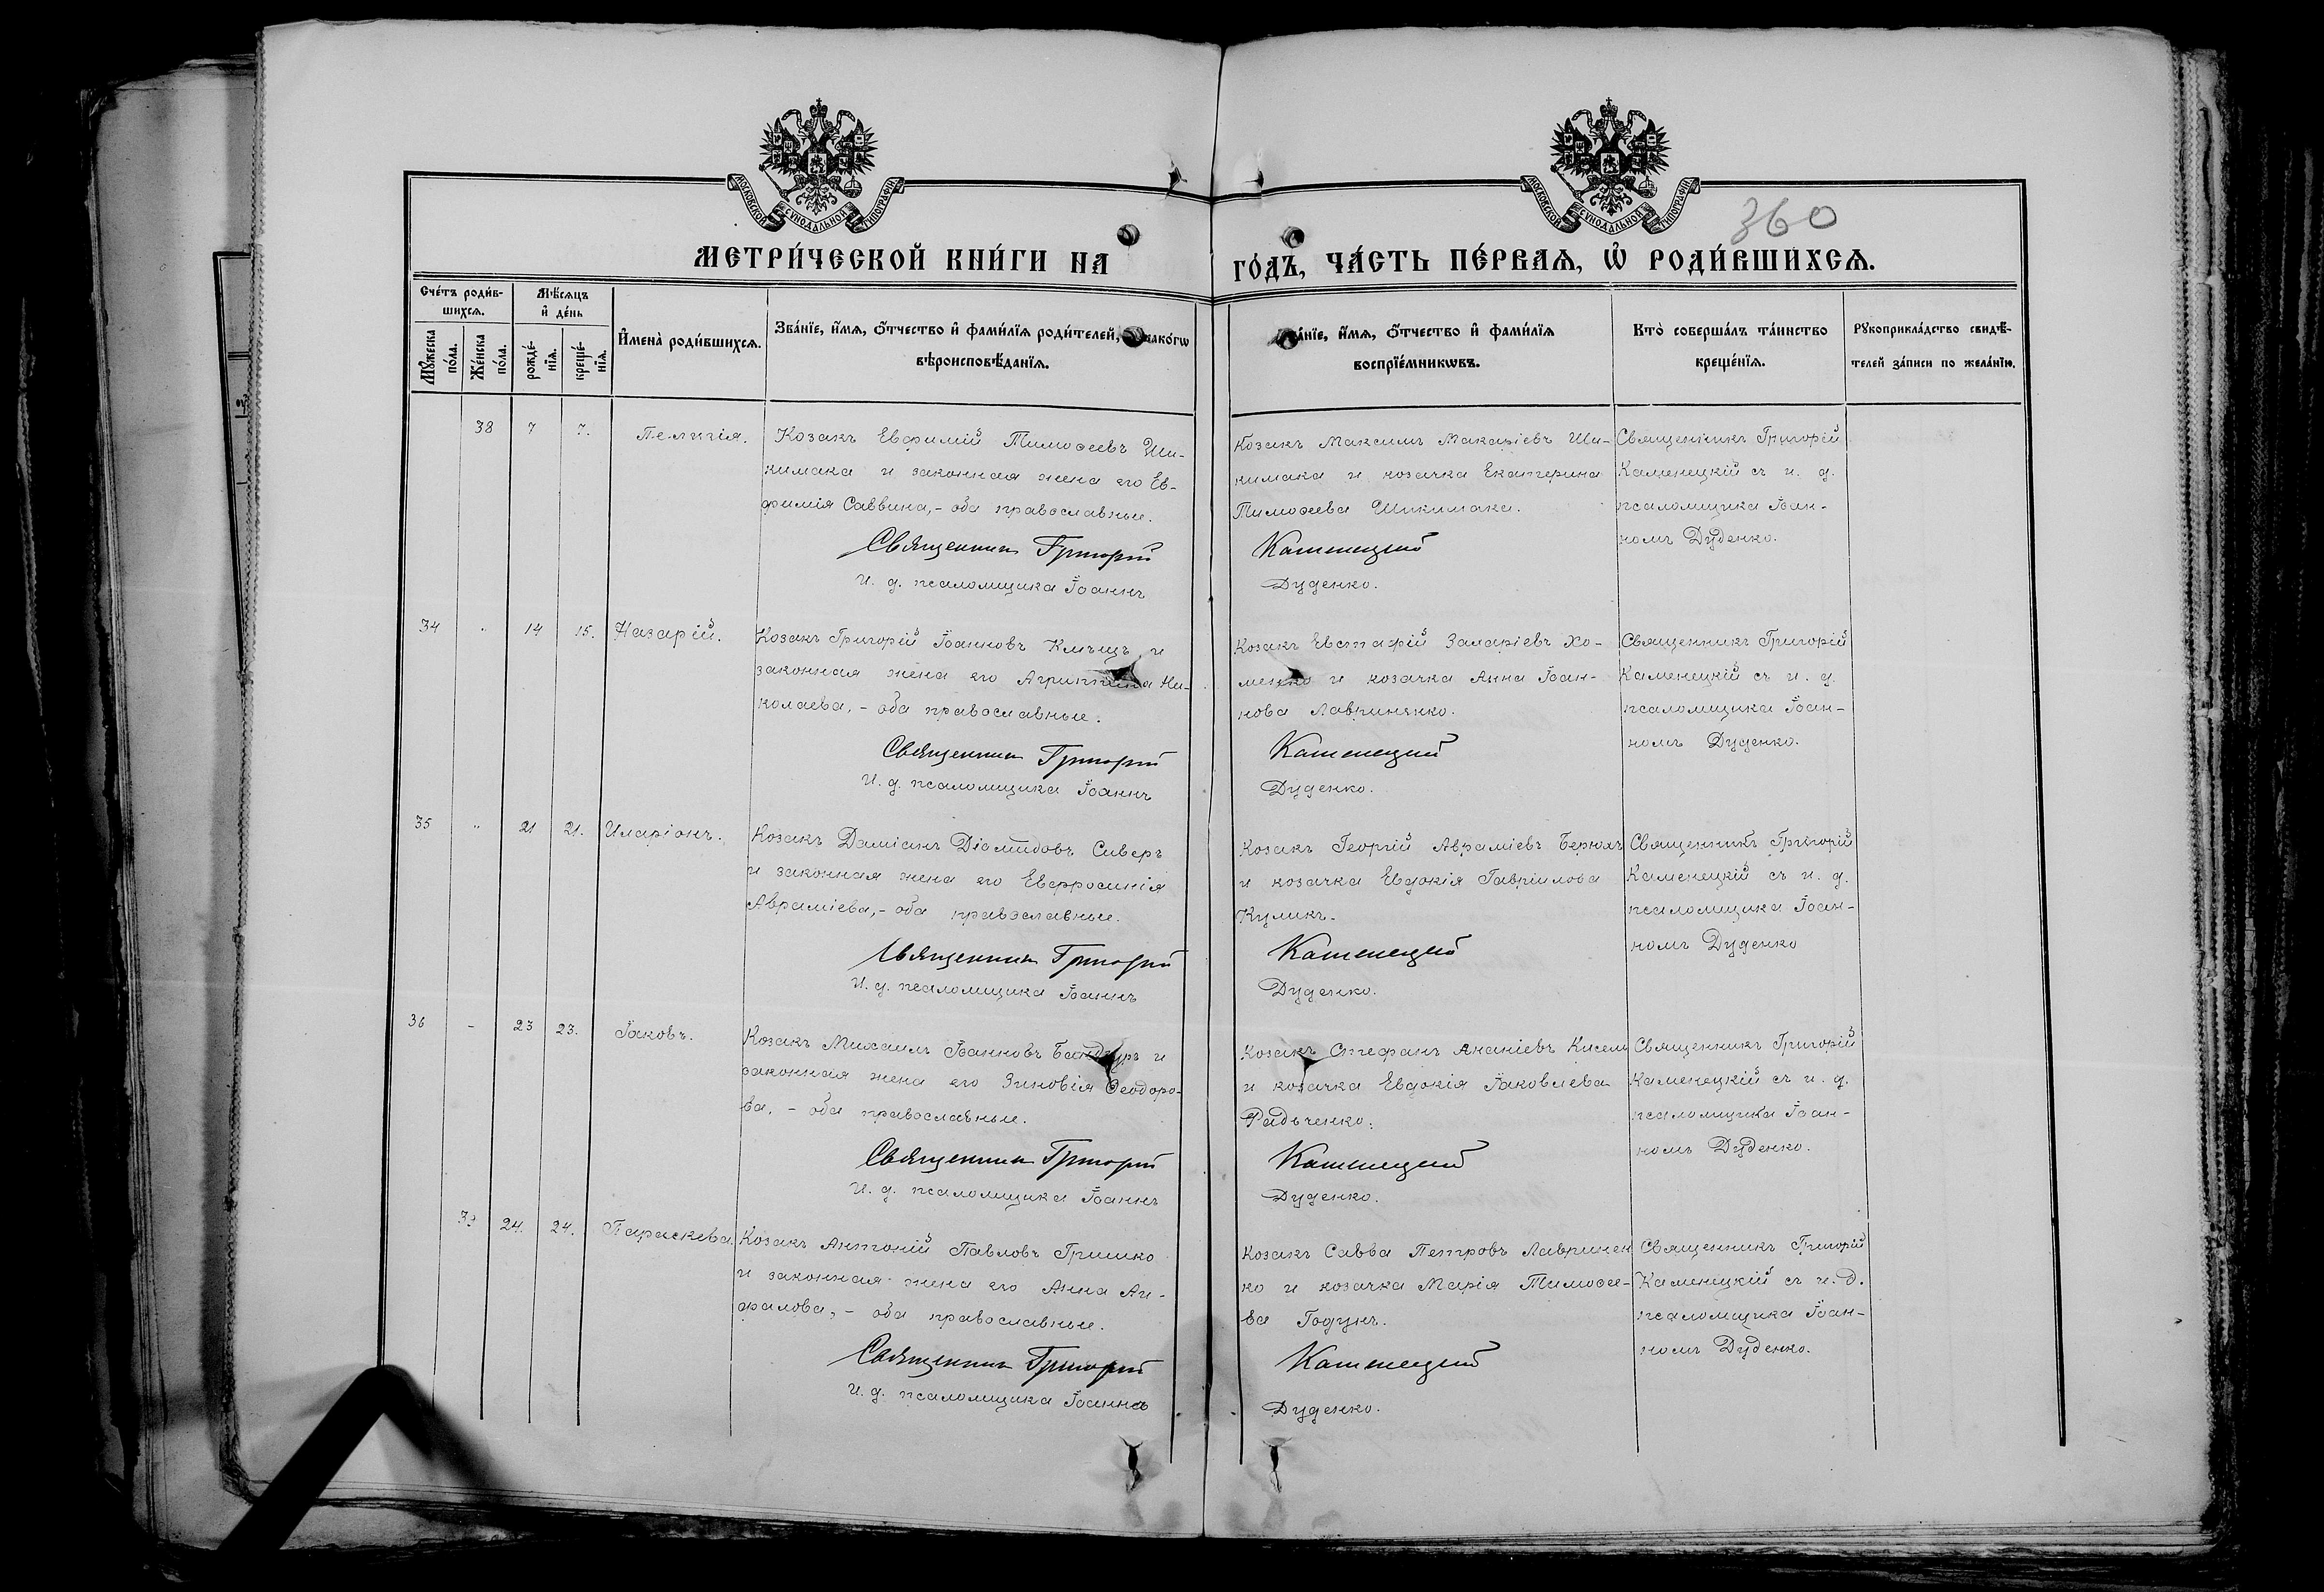 МОСКОВСКОЙ СѴНОДАЛЬНОЙ ТИПОГРАФІИ
МОСКОВСКОЙ СѴНОДАЛЬНОЙ ТИПОГРАФІИ
360
МЕТРИ́ЧЕСКОЙ КНИ́ГИ НА
ГО́ДЪ, ЧА́СТЬ ПЕ́РВАѦ, Ѡ҆ РОДИ́ВШИХСѦ.
Сче́тъ роди́в-
шихсѧ.
Мꙋ́жеска по́ла.
Же́нска по́ла.
Мѣ́сѧцъ
и҆ де́нь
рожде́-нїѧ.
креще́-нїѧ.
И҆мена̀ роди́вшихсѧ.
Зва́нїе, и҆́мѧ, ѻ҆́тчество и҆ фами́лїѧ роди́телей,
вѣроисповѣ́данїѧ.
и҆́мѧ, ѻ҆́тчество и҆ фами́лїѧ
воспрїе́мникѡвъ.
Кто̀ соверша́лъ та́инство
креще́нїѧ.
Рꙋкоприкла́дство свидѣ́-
телей за́писи по жела́нїю.
38 7 7. Пелагія.
Козакъ Евфимій Тимофеевъ Ши-
кимака и законная жена его Ев-
фимія Саввина,- оба православные.
Священникъ Григорій
И. д. псаломщика Іоаннъ
Козакъ Максимъ Макаріевъ Ши-
кимака и козачка Екатерина
Тимофеева Шикимака.
Каменецкій
Дуденко.
Священникъ Григорій
Каменецкій съ и. д.
псаломщика Іоан-
номъ Дуденко.
34 " 14 15. Назарій.
Козакъ Григорій Іоанновъ и
законная жена его Агриппина Ни-
колаева,- оба православные.
Священникъ Григорій
И. д. псаломщика Іоаннъ
Козакъ Евстафій Захаріевъ Хо-
менко и козачка Анна Іоан-
нова Лавриненко.
Каменецкій
Дуденко.
Священникъ Григорій
Каменецкій съ и. д.
псаломщика Іоан-
номъ Дуденко.
35 " 21 21. Иларіонъ.
Козакъ Даміанъ Діомидовъ Сиверъ
и законная жена его Евфросинія
Авраміева,- оба православные.
Священникъ Григорій
И. д. псаломщика Іоаннъ
Козакъ Георгій Авраміевъ
и козачка Евдокія Гавріилова
Куликъ.
Каменецкій
Дуденко.
Священникъ Григорій
Каменецкій съ и. д.
псаломщика Іоан-
номъ Дуденко
36 - 23 23. Іаковъ.
Козакъ Михаилъ Іоанновъ Бандуръ и
законная жена его Зиновія Феодоро-
ва, - оба православные.
Священникъ Григорій
И. д. псаломщика Іоаннъ
Козакъ Стефанъ Ананіевъ Кисель
и козачка Евдокія Іаковлева
Радьченко.
Каменецкій
Дуденко.
Священникъ Григорій
Каменецкій съ и. д.
псаломщика Іоан-
номъ Дуденко.
39 24. 24. Параскева.
Козакъ Антоній Павловъ Гришко
и законная жена его Анна Аг-
фалова,- оба православные.
Священникъ Григорій
И. д. псаломщика Іоаннъ
Козакъ Савва Петровъ Лавринен
ко и козачка Марія Тимофее-
ва Годунъ.
Каменецкій
Дуденко.
Священникъ Григорій
Каменецкій съ и. д.
псаломщика Іоан-
номъ Дуденко.